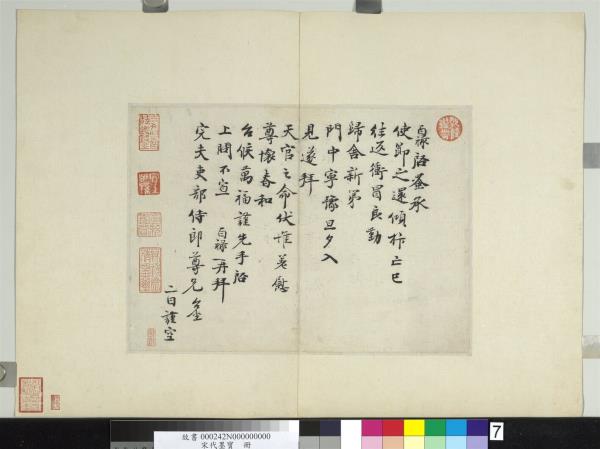 百祿啓茲承
使節之還傾柱亡已
往返衝冒良勤
歸舍新第
門中寧懷旦夕入
見遂拜
天官之命伏惟蒸慰
尊懷春和
台候萬福謹先手啓
上問不宣 百祿再拜
完夫吏部侍郎尊兄
二日謹空
故書 000242N000000000
宋代墨寶 冊
7